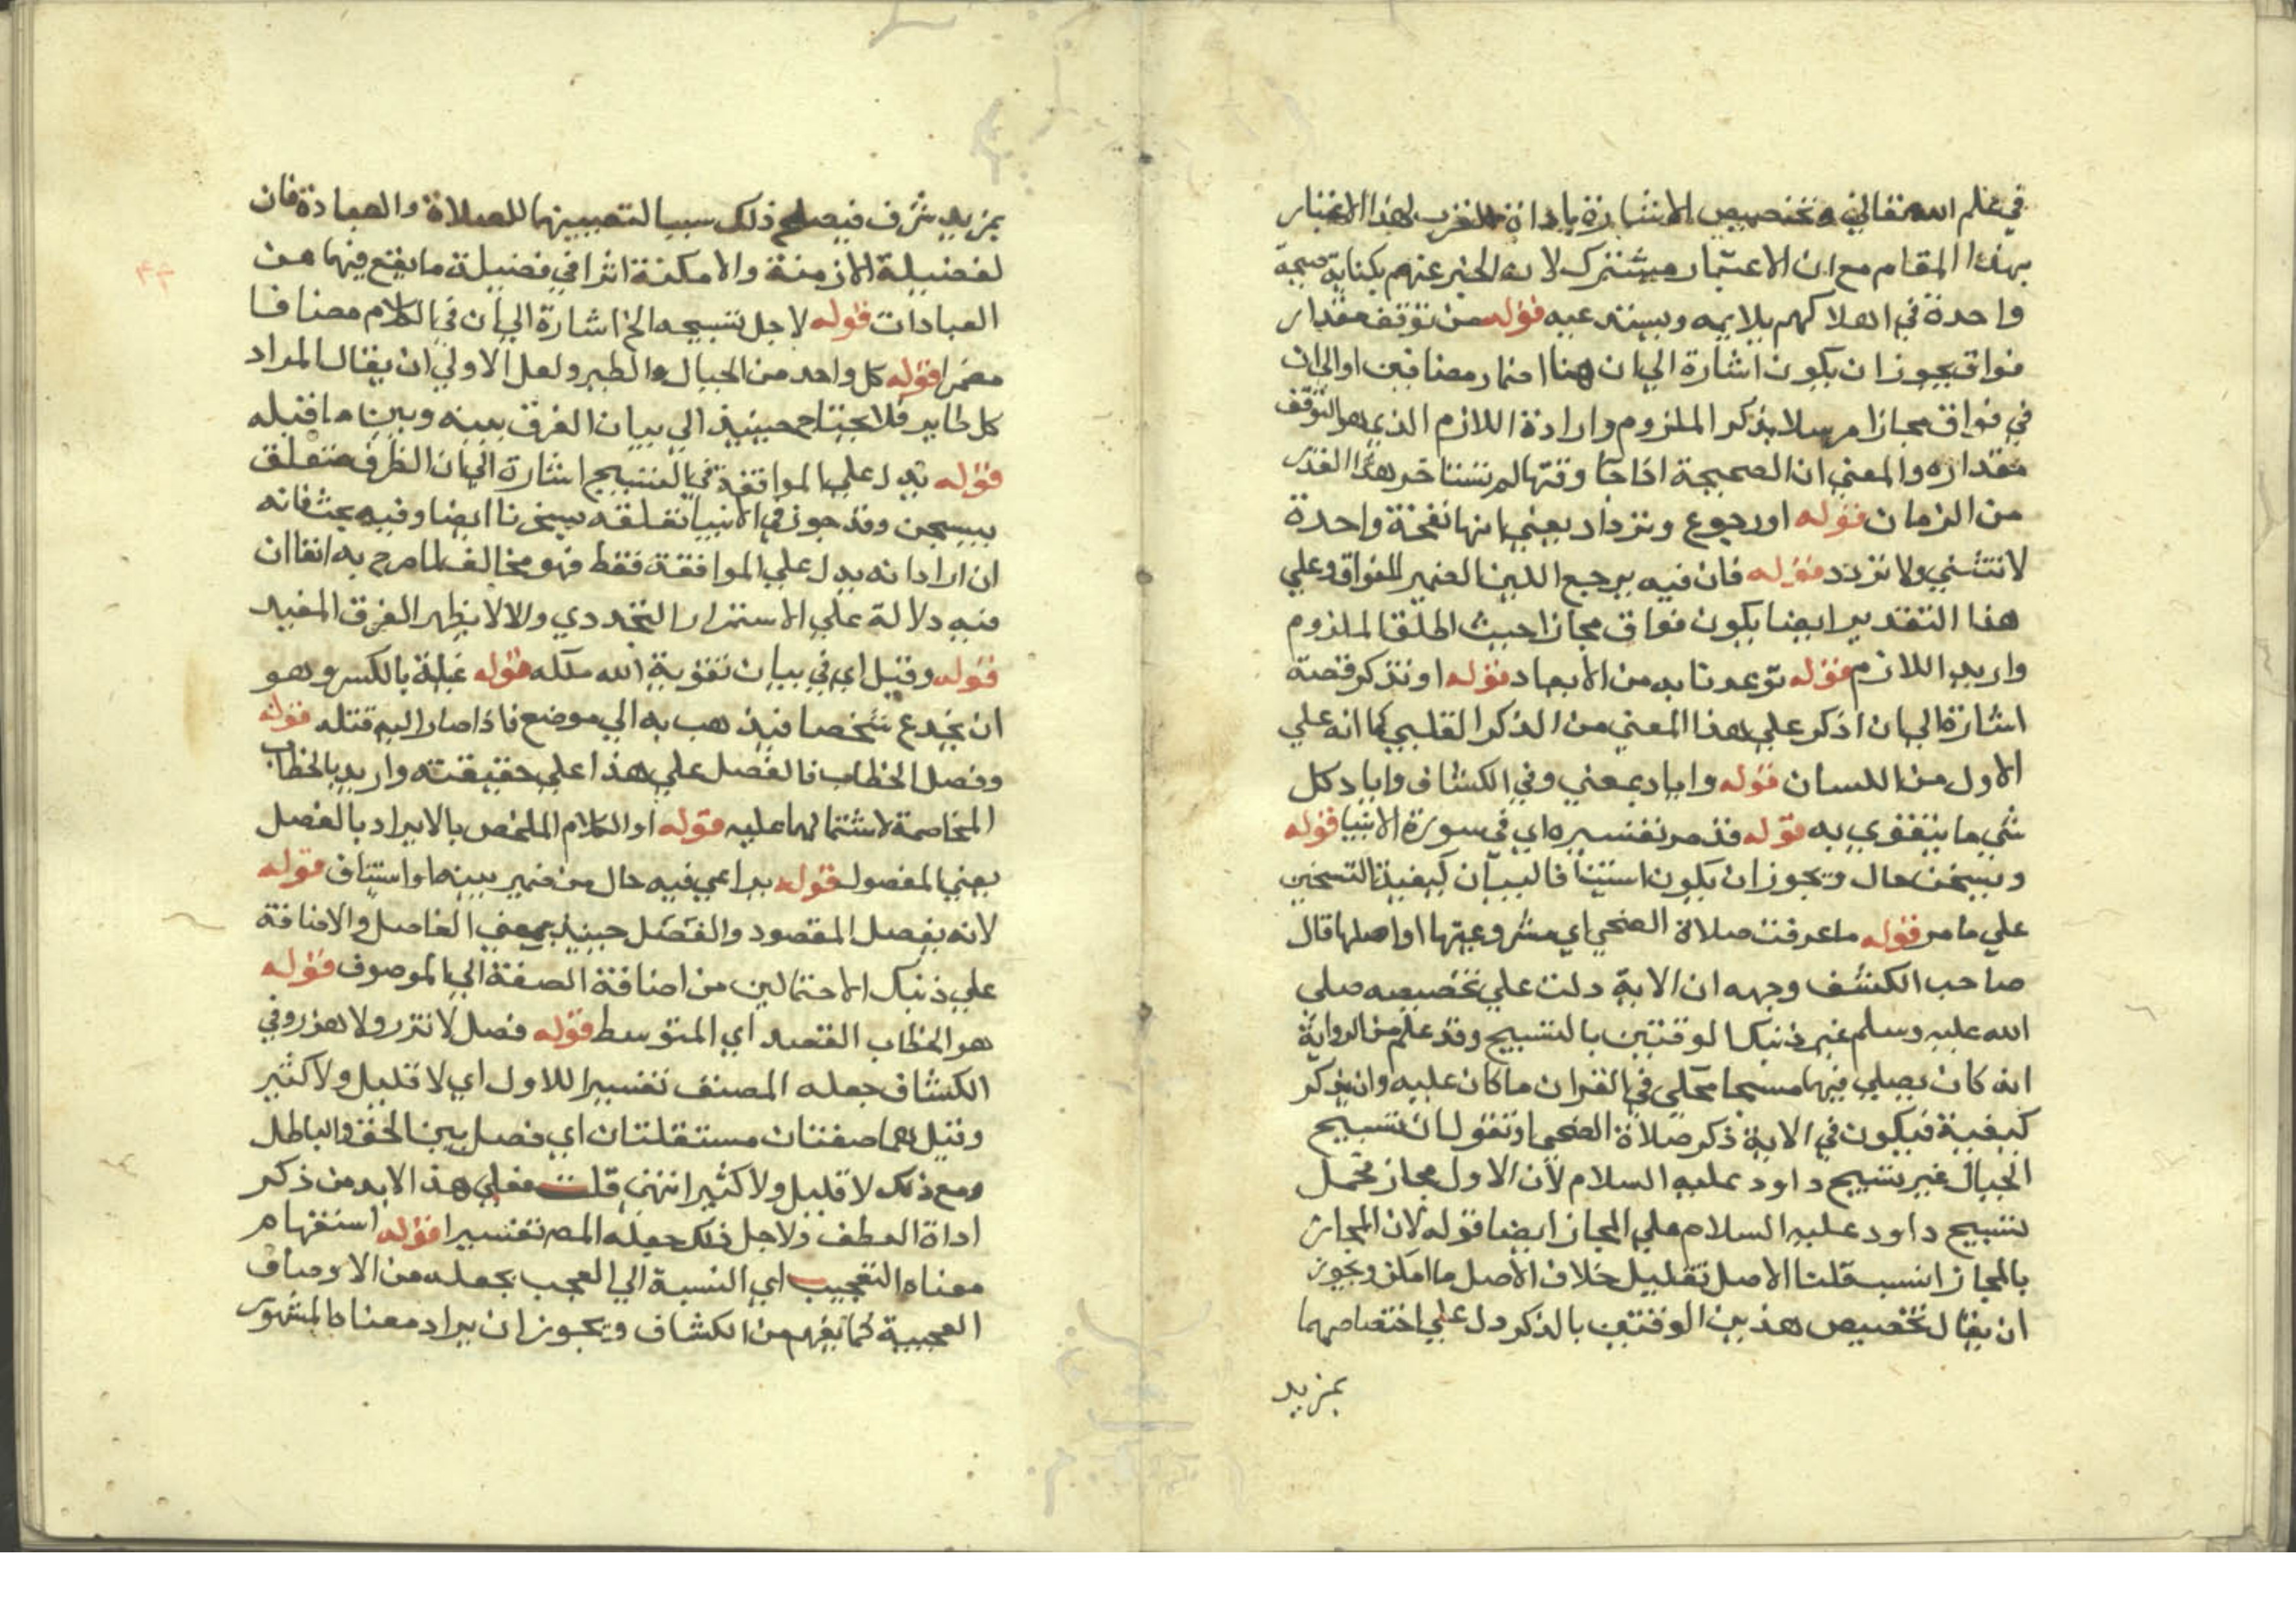 في علم الله تعالي وتخصيص الاشارة باداة القرب لهذا الاعتبار
بهذا المقام مع ان الاعتبار مشترك لانه الخبر عنهم بكناية صيحة
واحدة في اهلاكهم يلايمه ويستدعيه قوله من توقف مقدار
فواق يجوز ان يكون اشارة الي ان هنا اضمار مضافين اوالي ان
في فواق مجازا مرسلا بذكر الملزوم وارادة اللازم الذي هو التوقف
مقداره والمعني ان الصيحة اذا جا وقتها لم تستاخر هذا القدر
من الزمان قوله او رجوع وترداد يعني انها نفخة واحدة
لا تثني ولا تردد قوله فان فيه يرجع اللبن الضمير للفواق وعلي
هذا التقدير ايضا يكون فواق مجازا حيث اطلق الملزوم
واريد اللازم قوله توعدنا به من الابعاد قوله او تذكر قصته
اشارة الي ان اذكر علي هذا المعني من الذكر القلبي كما انه علي
الاول من اللسان قوله واياد بمعني وفي الكشاف واياد كل
شي ما يتقوي به قوله قد مر تفسيره اي في سورة الانبيا قوله
ويسبحن حال ويجوز ان يكون استينافا لبيان كيفية التسخير
علي ما مر قوله ما عرفت صلاة الضحي اي مشروعيتها او اصلها قال
صاحب الكشف وجهه ان الاية دلت علي تخصيصه صلي
الله عليه وسلم غير ذينك الوقتين بالتسبيح وقد علم من الرواية
انه كان يصلي فيها مسبحا محكي في القران ما كان عليه وان يذكر
كيفية فيكون في الاية ذكر صلاة الضحي او تقول ان تسبيح
الجبال غير تسبيح داود عليه السلام لان الاول مجاز فحمل
تسبيح داود عليه السلام علي المجاز ايضا قوله لان المجاز
بالمجاز انسب قلنا الاصل تقليل خلاف الاصل ما امكن ويجوز
ان يقال تخصيص هذين الوقتين بالذكر دل علي اختصاصهما
بمزيد
بمزيد شرف فيصلح ذلك سببا لتعيينهما للصلاة والعبادة فان
لفضيلة الازمنة والامكنة اثرا في فضيلة ما يقع فيها من
العبادات قوله لاجل تسبيحه الخ اشارة الي ان في الكلام مضافا
مضمرا قوله كل واحد من الجبال والطير ولعل الاولي ان يقال المراد
كل طاير فلا يحتاج حينيذ الي بيان الفرق بينه وبين ما قبله
قوله يدل علي الموافقة في التسبيح اشارة الي ان الظرف متعلق
بيسبحن وقد جوز في الانبيا تعلقه بسخرنا ايضا وفيه بحث فانه
ان اراد انه يدل علي الموافقة فقط فهو مخالف لما صرح به انفا ان
فيه دلالة علي الاستمرار التجددي والا لا يظهر الفرق المفيد
قوله وقيل اي في بيان تقوية الله ملكه قوله غيلة بالكسر وهو
ان يخدع شخصا فيذهب به الي موضع فاذا صار اليه قتله قوله
وفصل الخطاب فالفصل علي هذا علي حقيقته واريد بالخطاب
المخاصمة لاشتمالها عليه قوله او الكلام الملخص بالايراد بالفصل
بمعني المفصول قوله يراعي فيه حال من ضمير بينه او استيناف قوله
لانه يفصل المقصود والفصل حينيذ بمعني الفاصل والاضافة
علي ذينك الاحتمالين من اضافة الصفة الي الموصوف قوله
هو الخطاب القصد اي المتوسط قوله فصل لا نزر ولا هذر وفي
الكشاف جعله المصنف تفسيرا للاول اي لا قليل ولا كثير
وقيل هما صفتان مستقلتان اي فصل بين الحق والباطل
ومع ذلك لا قليل ولا كثير انتهي قلت فعلي هذا لا بد من ذكر
اداة العطف ولاجل ذلك جعله المص تفسيرا قوله استفهام
معناه التعجيب اي النسبة الي العجب بجعله من الاوصاف
العجيبة كما يفهم من الكشاف ويجوز ان يراد معناه المشهور